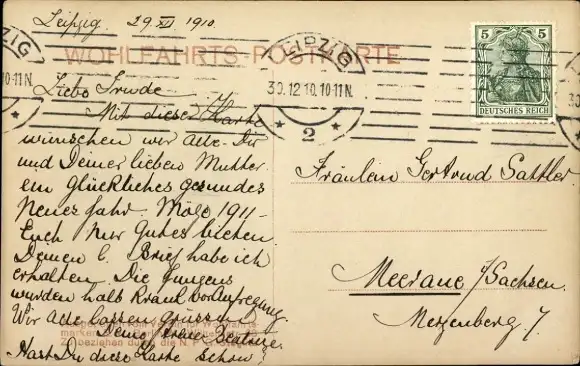 Leipzig. 29. XII 1910.
WOHLFAHRTS-POSTKARTE
LEIPZIG
30.12.10.10-11N.
* 2 *
5 5
DEUTSCHES REICH
Liebe Trude
Mit dieser Karte
wünschen wir Alle. Dir
und Deiner lieben Mutter.
ein Glückliches gesundes
Neues Jahr. Möge 1911 –
Euch Nur Gutes bieten.
Deinen l. Brief habe ich
erhalten. Die Jungens
wurden halb Krank vor Aufregung.
Wir Alle lassen Grüssen
Deine
Hast Du diese Karte schon?
Zu beziehen durch die N. P. G.
Fräulein Gertrud Sattler.
Meerane i/Sachsen.
Merzenberg 7.